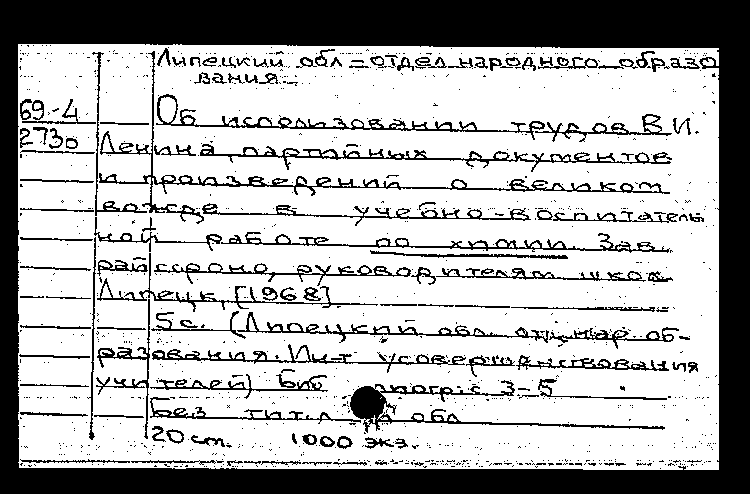 Липецкий обл = отдел народного образо
вания.
69-4
Об использовании трудов В.И.
2730
Ленина, партийных документов
и произведений о великом
вожде в учебно-воспитатель
ной работе по химии. Зав.
рай гороно, руководителям школ.
Липецк, [1968]
5 с. (Липецкий обл. отд. нар. об-
разования. Ин-т усовершенствования
учителей) Библиогр: с. 3-5
Без тит.л. и обл
20 cm. 1000 экз.